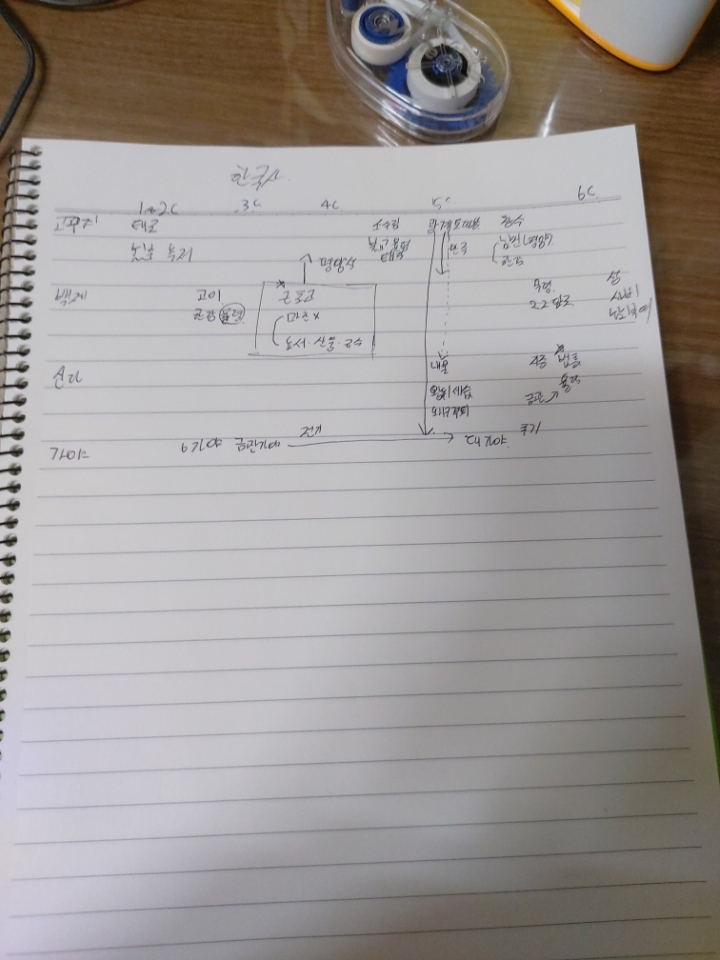 한국사
1~2C 3C 4C 5C 6C
고구려 태조 소수림 장수
옥저 불교 율령 태학 남진(평양
평양성
백제 고이 근초고 무령 성
관등 율령 마한 x 22담로 사비
동서·산둥·규수 남부여
신라 내물 지증 법흥
왕위세습 율령
왜구격퇴 금관↗
전기
가야 6가야 금관가야 → 대가야 후기